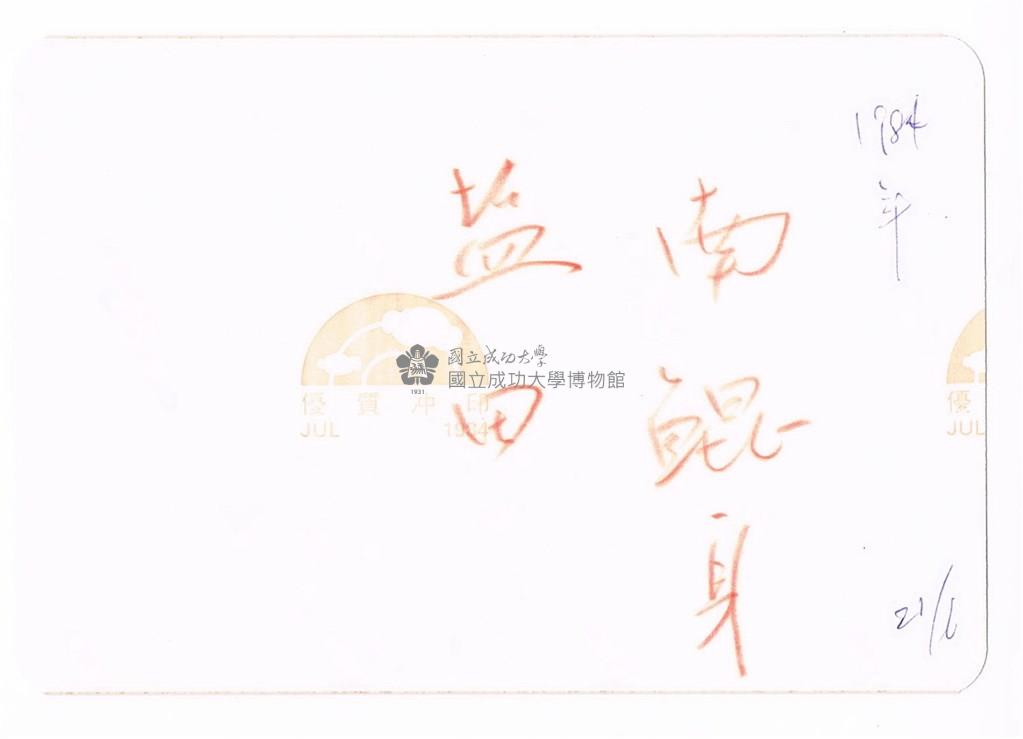 1984年
21/6
南鯤身
盐田
國立成功大學
國立成功大學博物館
1931
優質冲印
JUL 1984
優
JUL